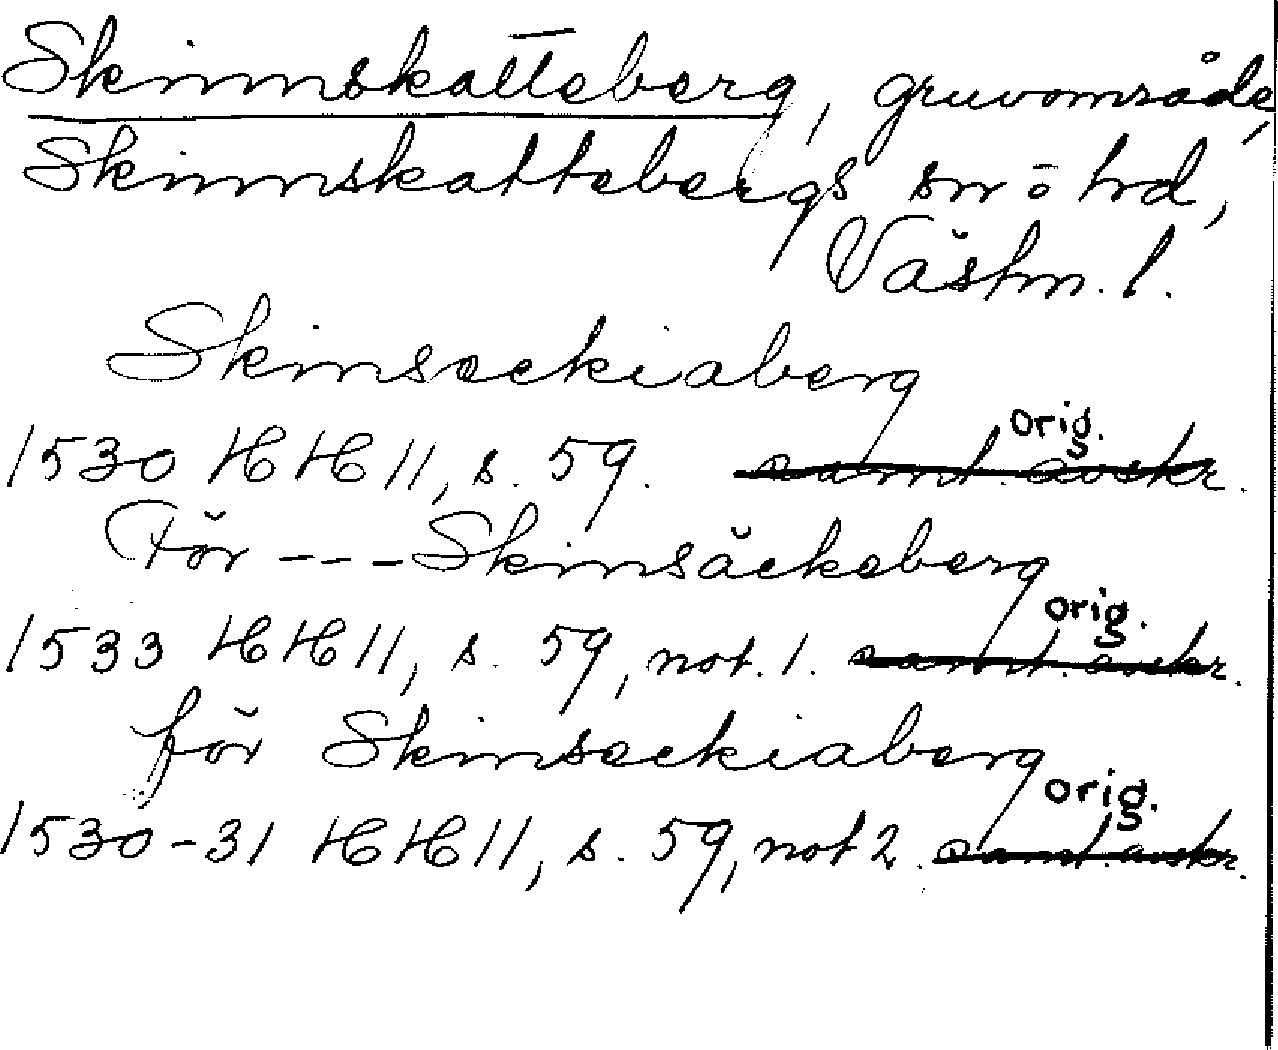 Skinnskatteberg, gruvområde,
Skinnskattebergs sn o hd,
Västm. l.
Skinseckiaberg
orig.
1530 HH 11, s. 59. samt. avskr.
För --- Skinsäckeberg
orig.
1533 HH 11, s. 59, not. 1. samt. avskr.
för Skinseckiaberg
orig.
1530-31 HH 11, s. 59, not 2. samt. avskr.